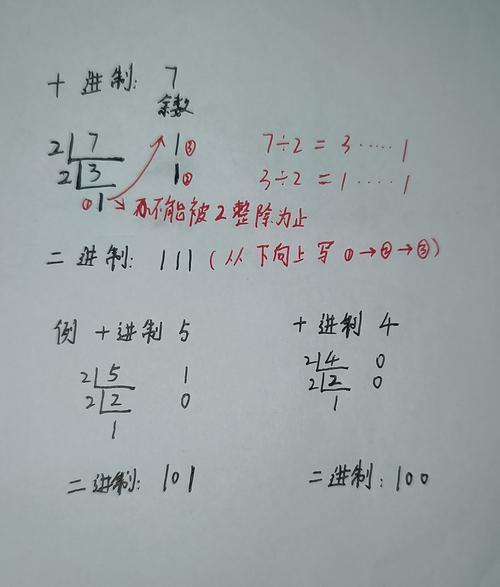 十进制: 7
余数
2 7 1③ 7÷2 = 3 ····· 1
2 3 1② 3÷2 = 1 ····· 1
①1 不能被2整除为止
二进制: 111 (从下向上写 ①→②→③)
例 十进制 5
2 5 1
2 2 0
1
二进制: 101
十进制 4
2 4 0
2 2 0
1
二进制: 100